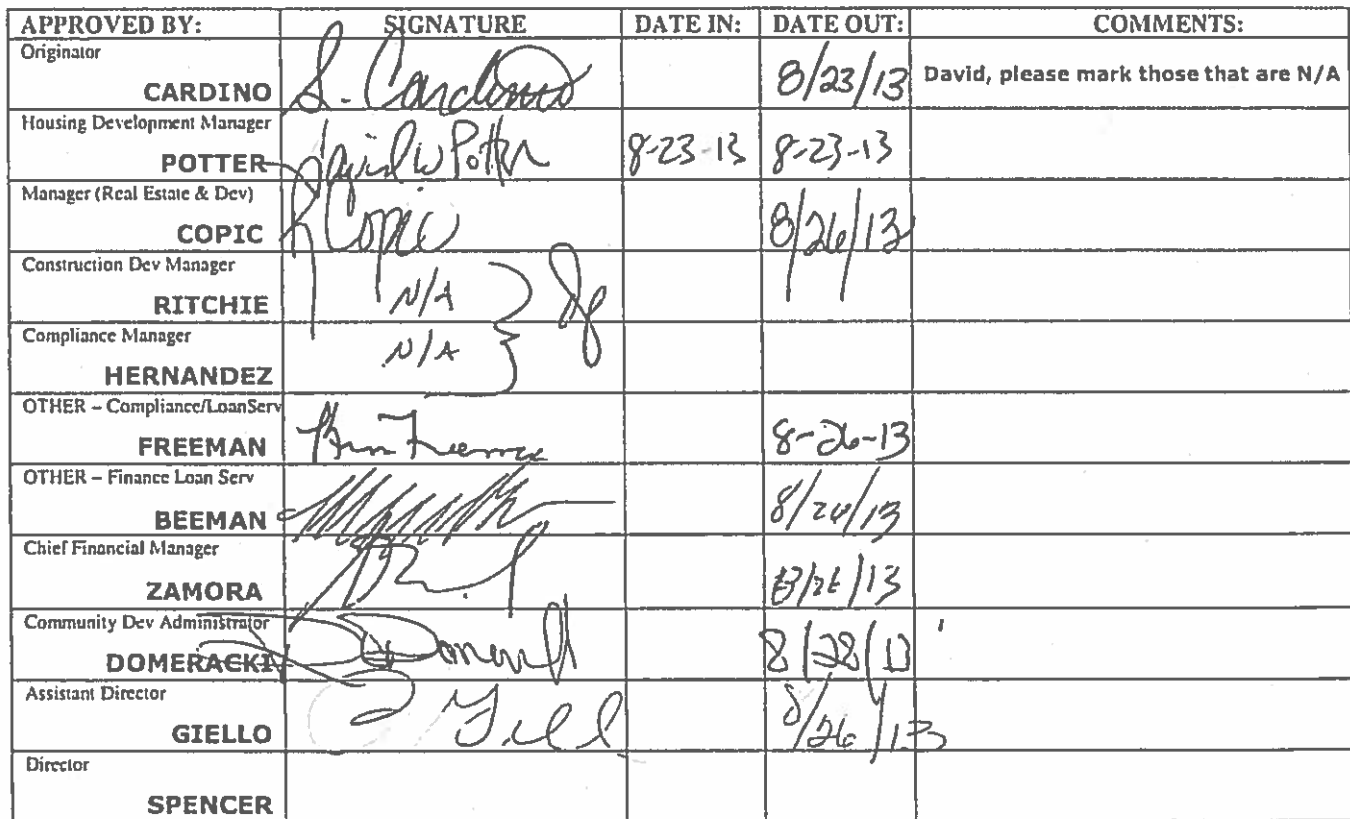 APPROVED BY: SIGNATURE DATE IN: DATE OUT: COMMENTS:
Originator
CARDINO S. Cardino 8/23/13 David, please mark those that are N/A
Housing Development Manager
POTTER David W Potter 8-23-13 8-23-13
Manager (Real Estate & Dev)
COPIC R Copic 8/26/13
Construction Dev Manager
RITCHIE N/A
Compliance Manager
HERNANDEZ N/A
OTHER – Compliance/LoanServ
FREEMAN Freeman 8-26-13
OTHER – Finance Loan Serv
BEEMAN 8/26/13
Chief Financial Manager
ZAMORA 8/26/13
Community Dev Administrator
DOMERACKI 8/28/13
Assistant Director
GIELLO 8/26/13
Director
SPENCER